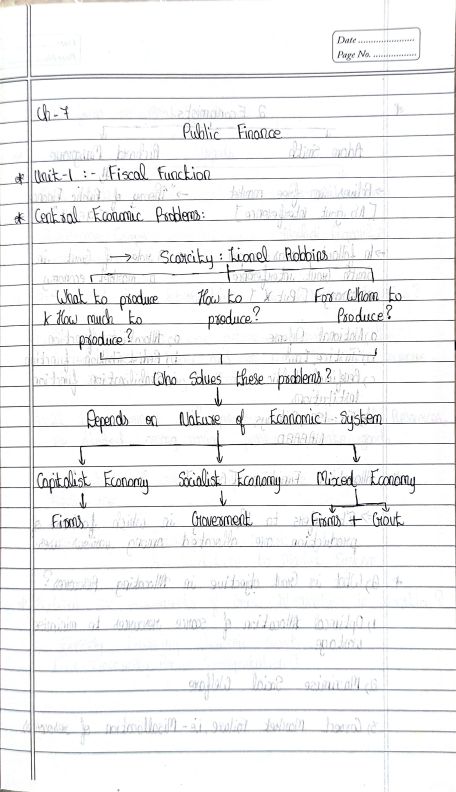 Date ....................
Page No. ................
Ch-7
Public Finance
* Unit-1 :- Fiscal Function
* Central Economic Problems:
→ Scarcity : Lionel Robbins
What to produce How to For Whom to
& How much to produce? Produce?
produce?
Who Solves these problems?
Depends on Nature of Economic System
Capitalist Economy Socialist Economy Mixed Economy
Firms Goverment Firms + Govt